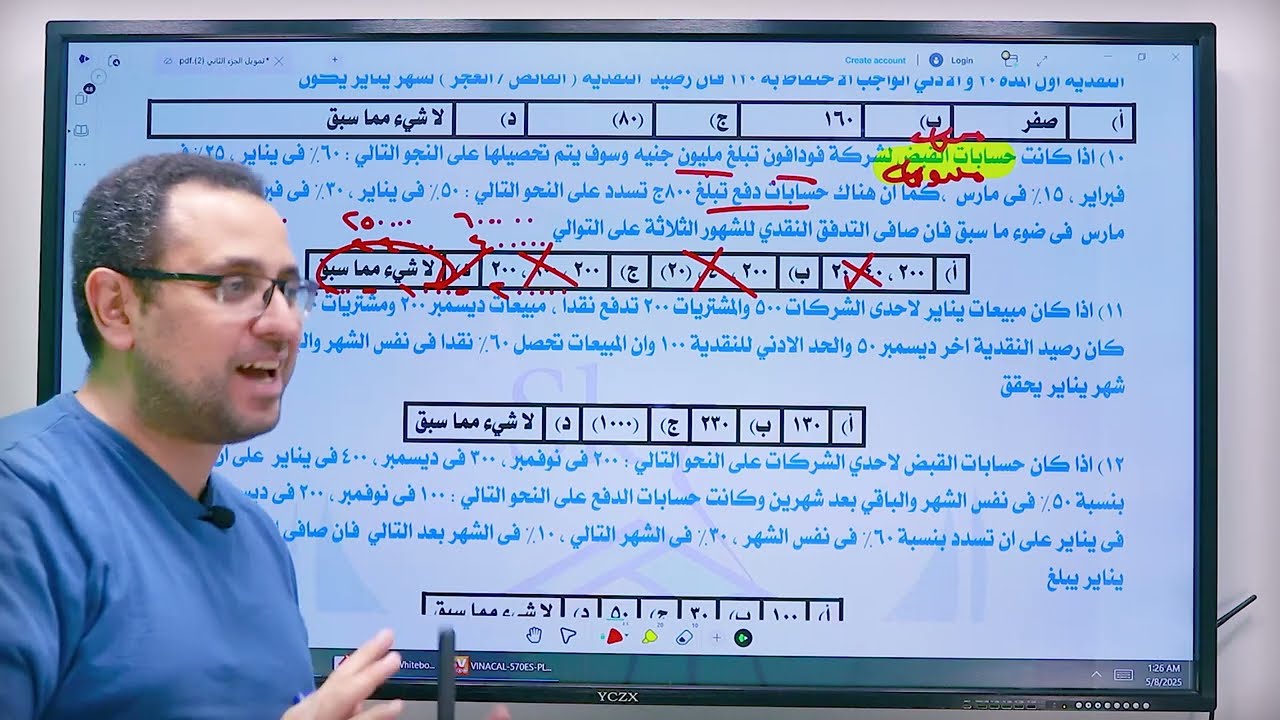 تمويل الجزء الثاني (2).pdf*
Create account
Login
النقدية اول المدة ٢٠ و الادني الواجب الاحتفاظ به ١٢٠ فان رصيد النقدية ( الفائض / العجز ) لشهر يناير يكون
أ) صفر ب) ١٦٠ ج) (٨٠) د) لا شيء مما سبق
١٠) اذا كانت حسابات القبض لشركة فودافون تبلغ مليون جنيه وسوف يتم تحصيلها على النحو التالي : ٦٠٪ فى يناير ، ٢٥٪ فى
فبراير ، ١٥٪ فى مارس ، كما ان هناك حسابات دفع تبلغ ٨٠٠ج تسدد على النحو التالي : ٥٠٪ فى يناير ، ٣٠٪ فى
مارس فى ضوء ما سبق فان صافى التدفق النقدي للشهور الثلاثة على التوالي
أ) ٢٠٠ ، ٤٠ ، ب) ٢٠٠ ، (٢٠) ج) ٢٠٠ ، ٢٠٠ لا شيء مما سبق
١١) اذا كان مبيعات يناير لاحدى الشركات ٥٠٠ والمشتريات ٢٠٠ تدفع نقدا ، مبيعات ديسمبر ٢٠٠ ومشتريات
كان رصيد النقدية اخر ديسمبر ٥٠ والحد الادني للنقدية ١٠٠ وان المبيعات تحصل ٦٠٪ نقدا فى نفس الشهر
شهر يناير يحقق
أ) ١٣٠ ب) ٢٣٠ ج) (١٠٠٠) د) لا شيء مما سبق
١٢) اذا كان حسابات القبض لاحدي الشركات على النحو التالي : ٢٠٠ فى نوفمبر ، ٣٠٠ فى ديسمبر ، ٤٠٠ فى يناير على ان
بنسبة ٥٠٪ فى نفس الشهر والباقي بعد شهرين وكانت حسابات الدفع على النحو التالي : ١٠٠ فى نوفمبر ، ٢٠٠ فى
فى يناير على ان تسدد بنسبة ٦٠٪ فى نفس الشهر ، ٣٠٪ فى الشهر التالي ، ١٠٪ فى الشهر بعد التالي فان صافى
يناير يبلغ
أ) ١٠٠ ب) ٣٠ ج) ٥٠ د) لا شيء مما سبق
VINACAL-570ES-PL...
1:26 AM
5/8/2025
YCZX